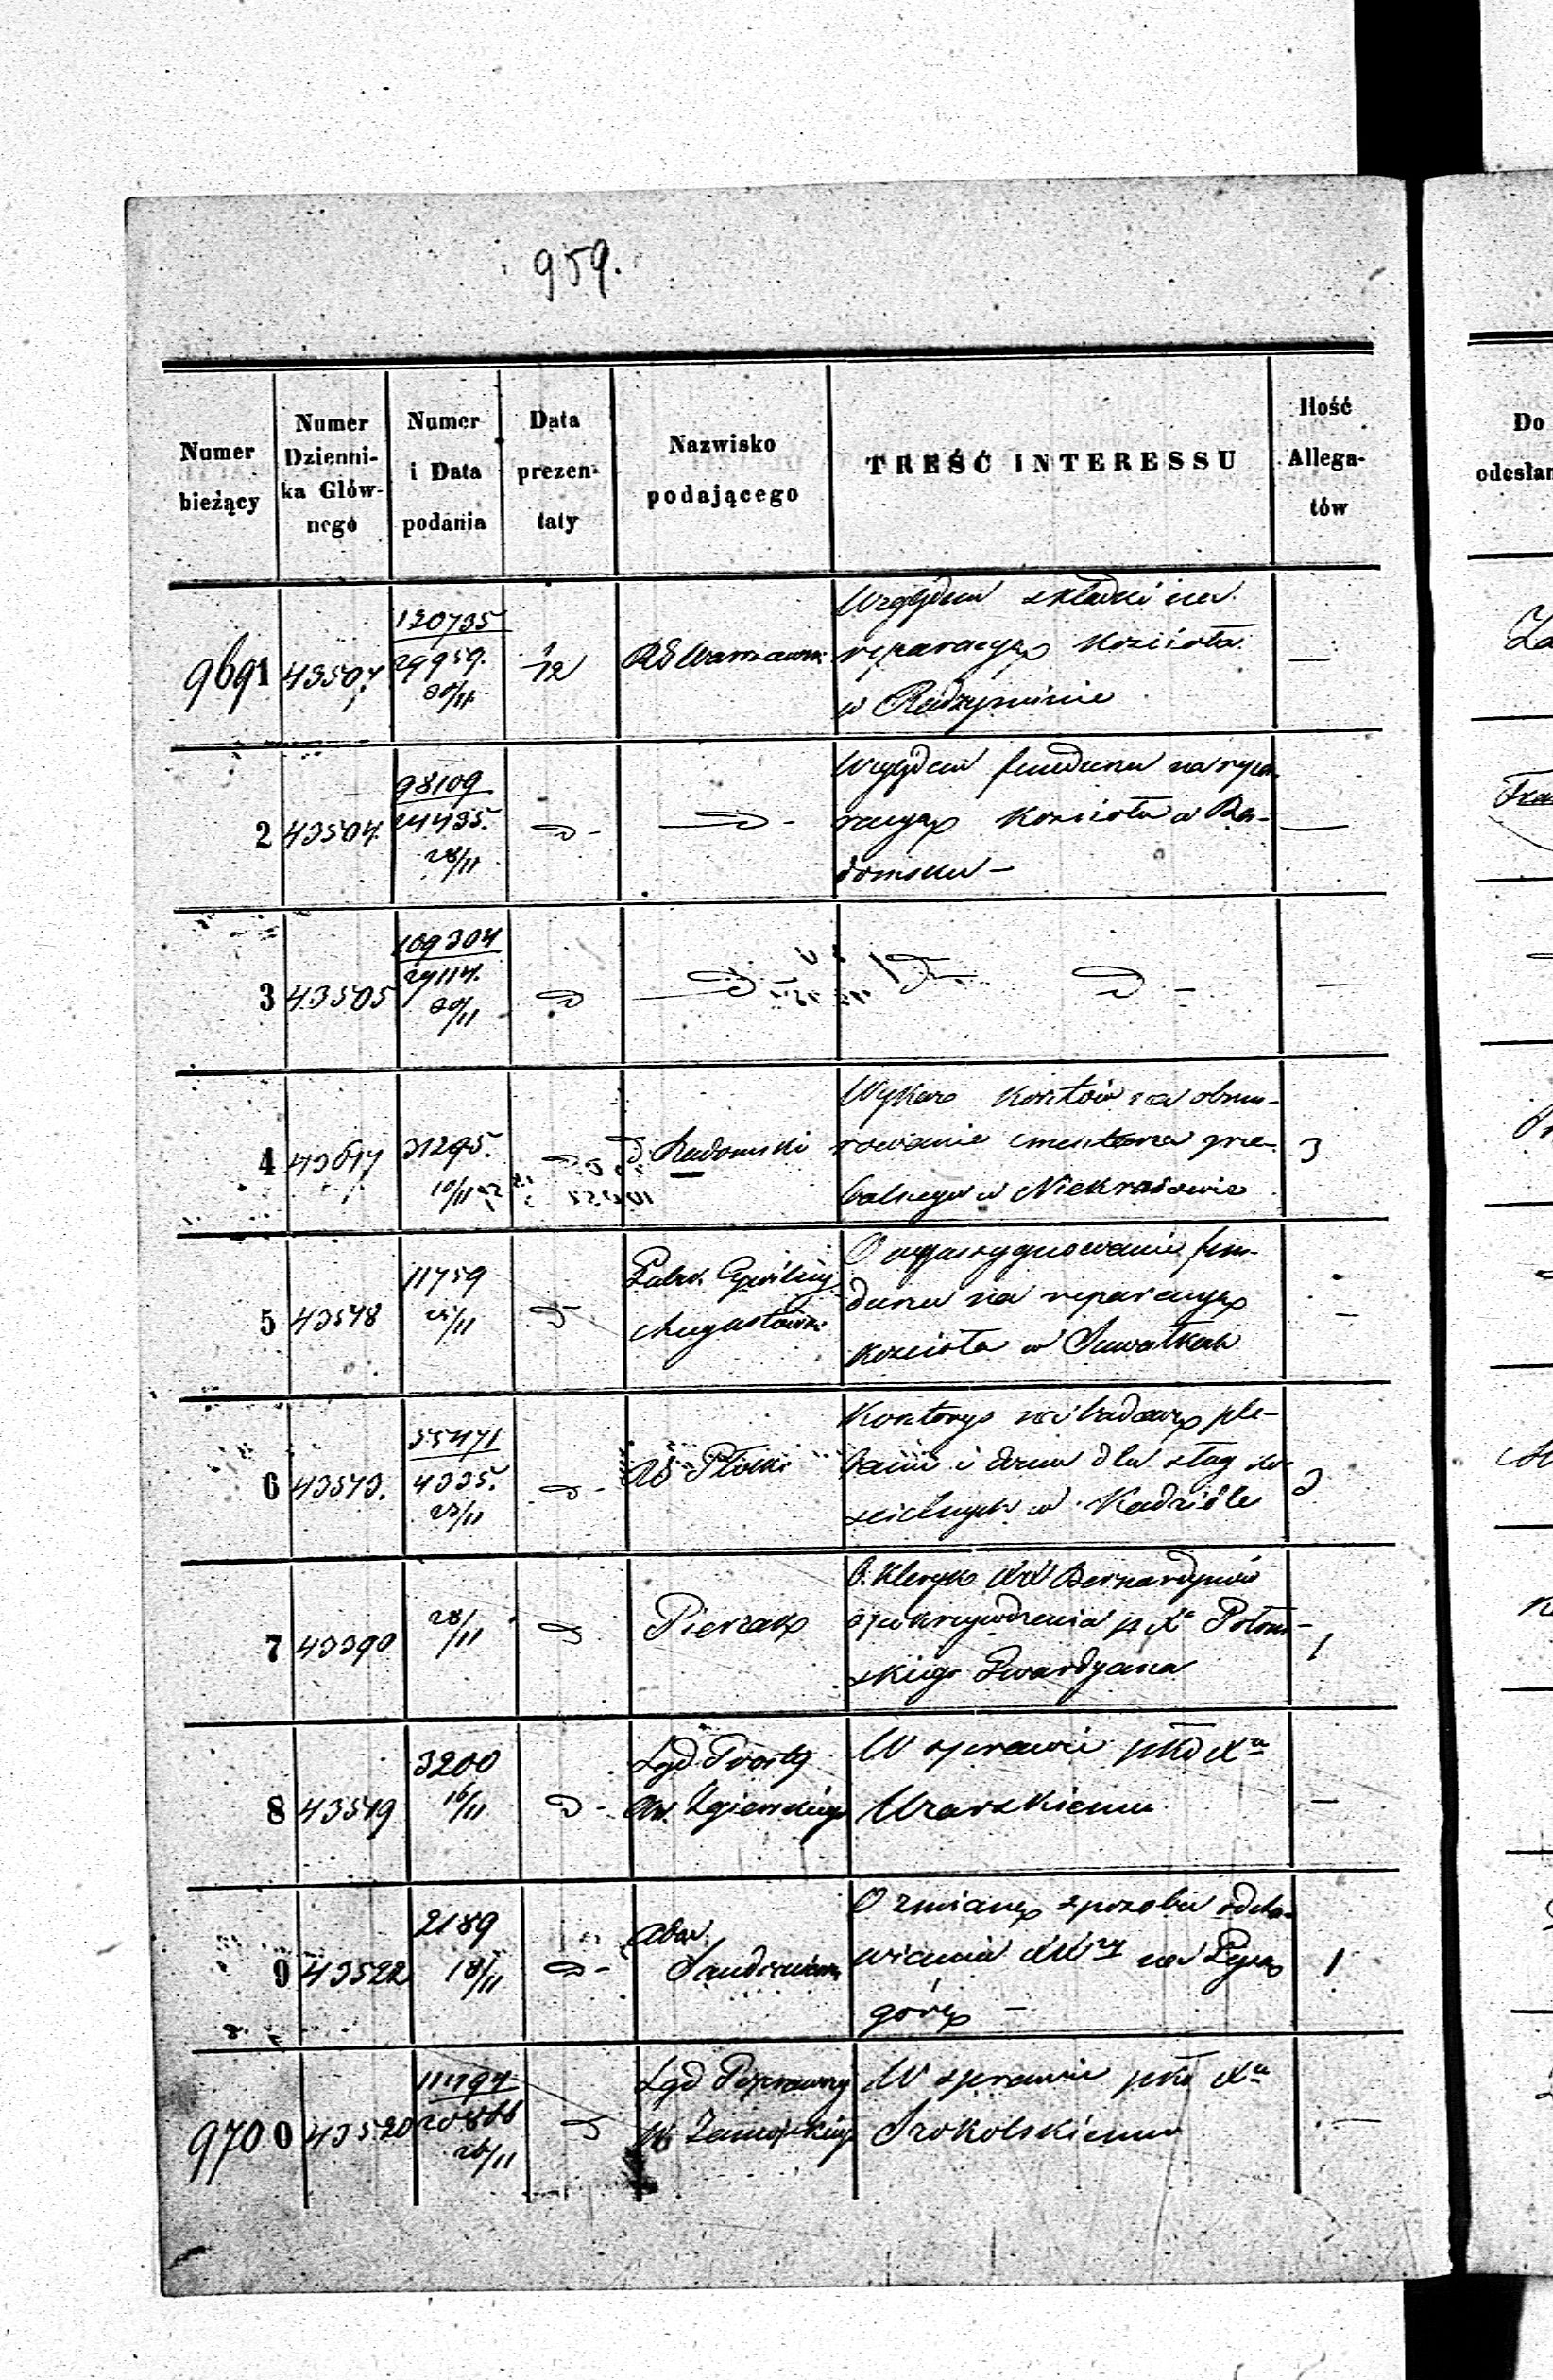 959.
Numer
bieżący
Numer
Dzienni-
ka Głów-
nego
Numer
i Data
podania
Data
prezen-
taty
Nazwisko
podającego
TREŚĆ INTERESSU
Ilość
Allega-
tów
Do
odesłan
9691
43507
120735
29959.
30/11
1/12
RG Warszawsk
Względem składki na
reparacyą Kościoła
w Radzyminie
—
2
43504.
98109
24435.
28/11
Względem funduszu na repa-
racyą Kościoła w Ra-
domsku —
—
3
43505
109304
27114.
30/11
—
4
31295.
10/11
Radomski
Wykaz kosztów na obmu-
rowanie cmentarza grze-
balnego w Niekrasowie
3
5
43548
11759
25/11
Gub. Cywilny
Augustowski
O wyassygnowanie fun-
duszu na reparacyą
Kościoła w Suwałkach
—
6
43543.
55471
4335.
23/11
RG Płocki
Kosztorys na budowę ple-
banii i domu dla sług ko-
ścielnych w Kadzidle
3
7
43390
28/11
Pierzak
b. Kleryk XX Bernardynów
o pokrzywdzenia p. Xa Potom-
skiego Gwardyana
1
8
43549
3200
16/11
Sąd Prosty
Kr. Zgierskiego
W sprawie pko Xu
Urarskiemu
—
9
43522
2189
18/11
Adm.
Sandomierski
O zmianę sposobu odsta-
wienia XXży na Łysą
górę —
1
9700
43520
111194
20866
26/11
Sąd Poprawczy
W. Zamojskiego
W sprawie pko Xu
Srokolskiemu
—